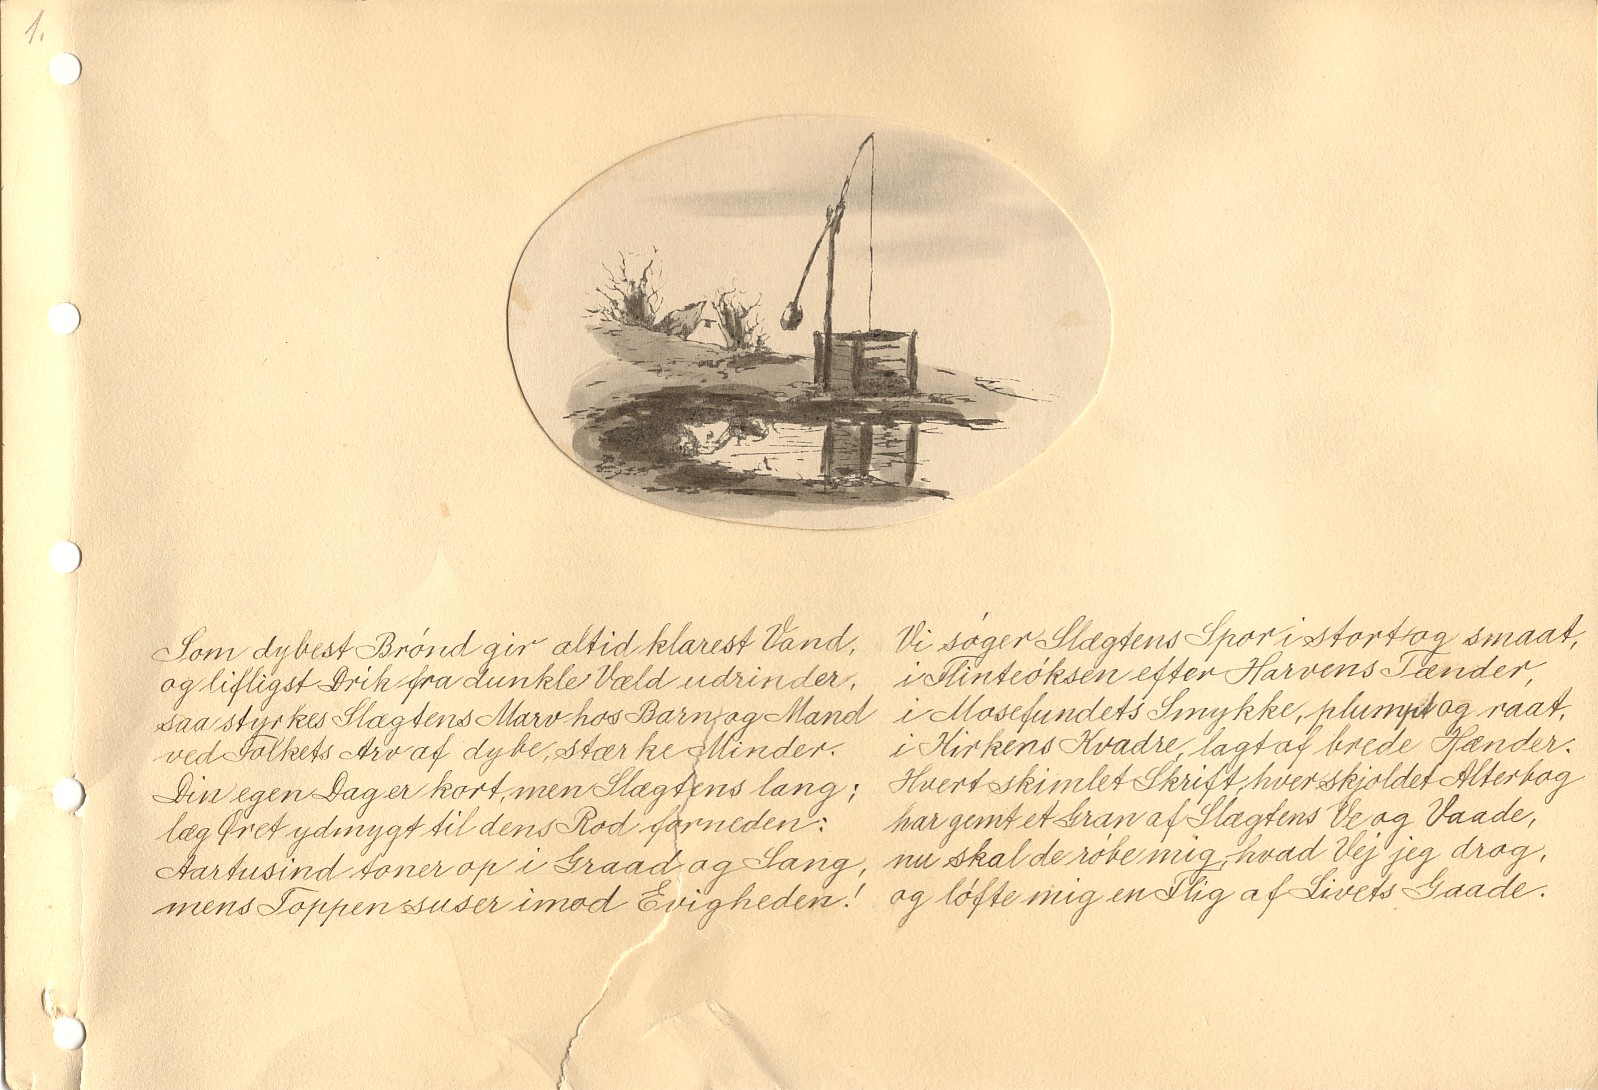 1.
Som dybest Brónd gir altid klarest Vand,
og lifligst Drik fra dunkle Væld udrinder,
saa styrkes Slægtens Marv hos Barn og Mand
ved Folkets Arv af dybe, stærke Minder.
Din egen Dag er kort, men Slægtens lang;
læg Øret ydmygt til dens Rod forneden:
Aartusind toner op i Graad og Sang,
mens Toppen suser imod Evigheden!
Vi sóger Slægtens Spor i stort og smaat,
i Flinteóksen efter Harvens Tænder,
i Mosefundets Smykke, plumpt og raat,
i Kirkens Kvadre, lagt af brede Hænder.
Hvert skimlet Skrift, hver skjoldet Alterbog
har gemt et Gran af Slægtens Ve og Vaade,
nu skal de róbe mig, hvad Vej jeg drog,
og lófte mig en Flig af Livets Gaade.